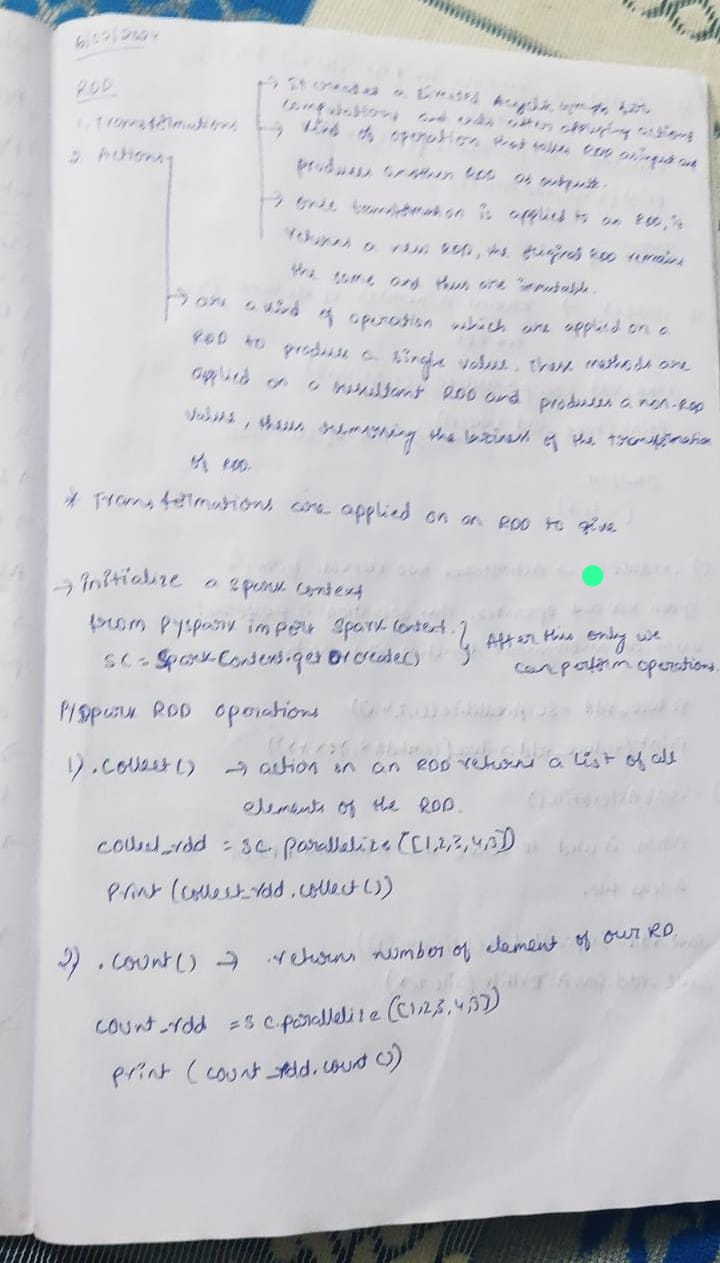 RDD
1. Transformations
2. Actions
→ It creates a Directed Acyclic Graph for
computations and ends after applying actions
→ kind of operation that takes RDD as input and
produces another RDD as output.
→ once transformation is applied to an RDD, it
returns a new RDD, the original RDD remains
the same and thus are immutable.
→ are a kind of operation which are applied on a
RDD to produce a single value. These methods are
applied on a resultant RDD and produces a non-RDD
value, thus removing the laziness of the transformation
of RDD.
* Transformations are applied on an RDD to give
→ initialize a spark context
from Pyspark import Spark Context } After this only we
sc = SparkContext.getOrCreate() } can perform operations.
PySpark RDD operations
1) .collect() → action in an RDD returns a list of all
elements of the RDD.
collect_rdd = sc.parallelize([1,2,3,4,5])
print (collect_rdd.collect())
2) .count() → returns number of element of our RD.
count_rdd = sc.parallelize([1,2,3,4,5])
print (count_rdd.count())